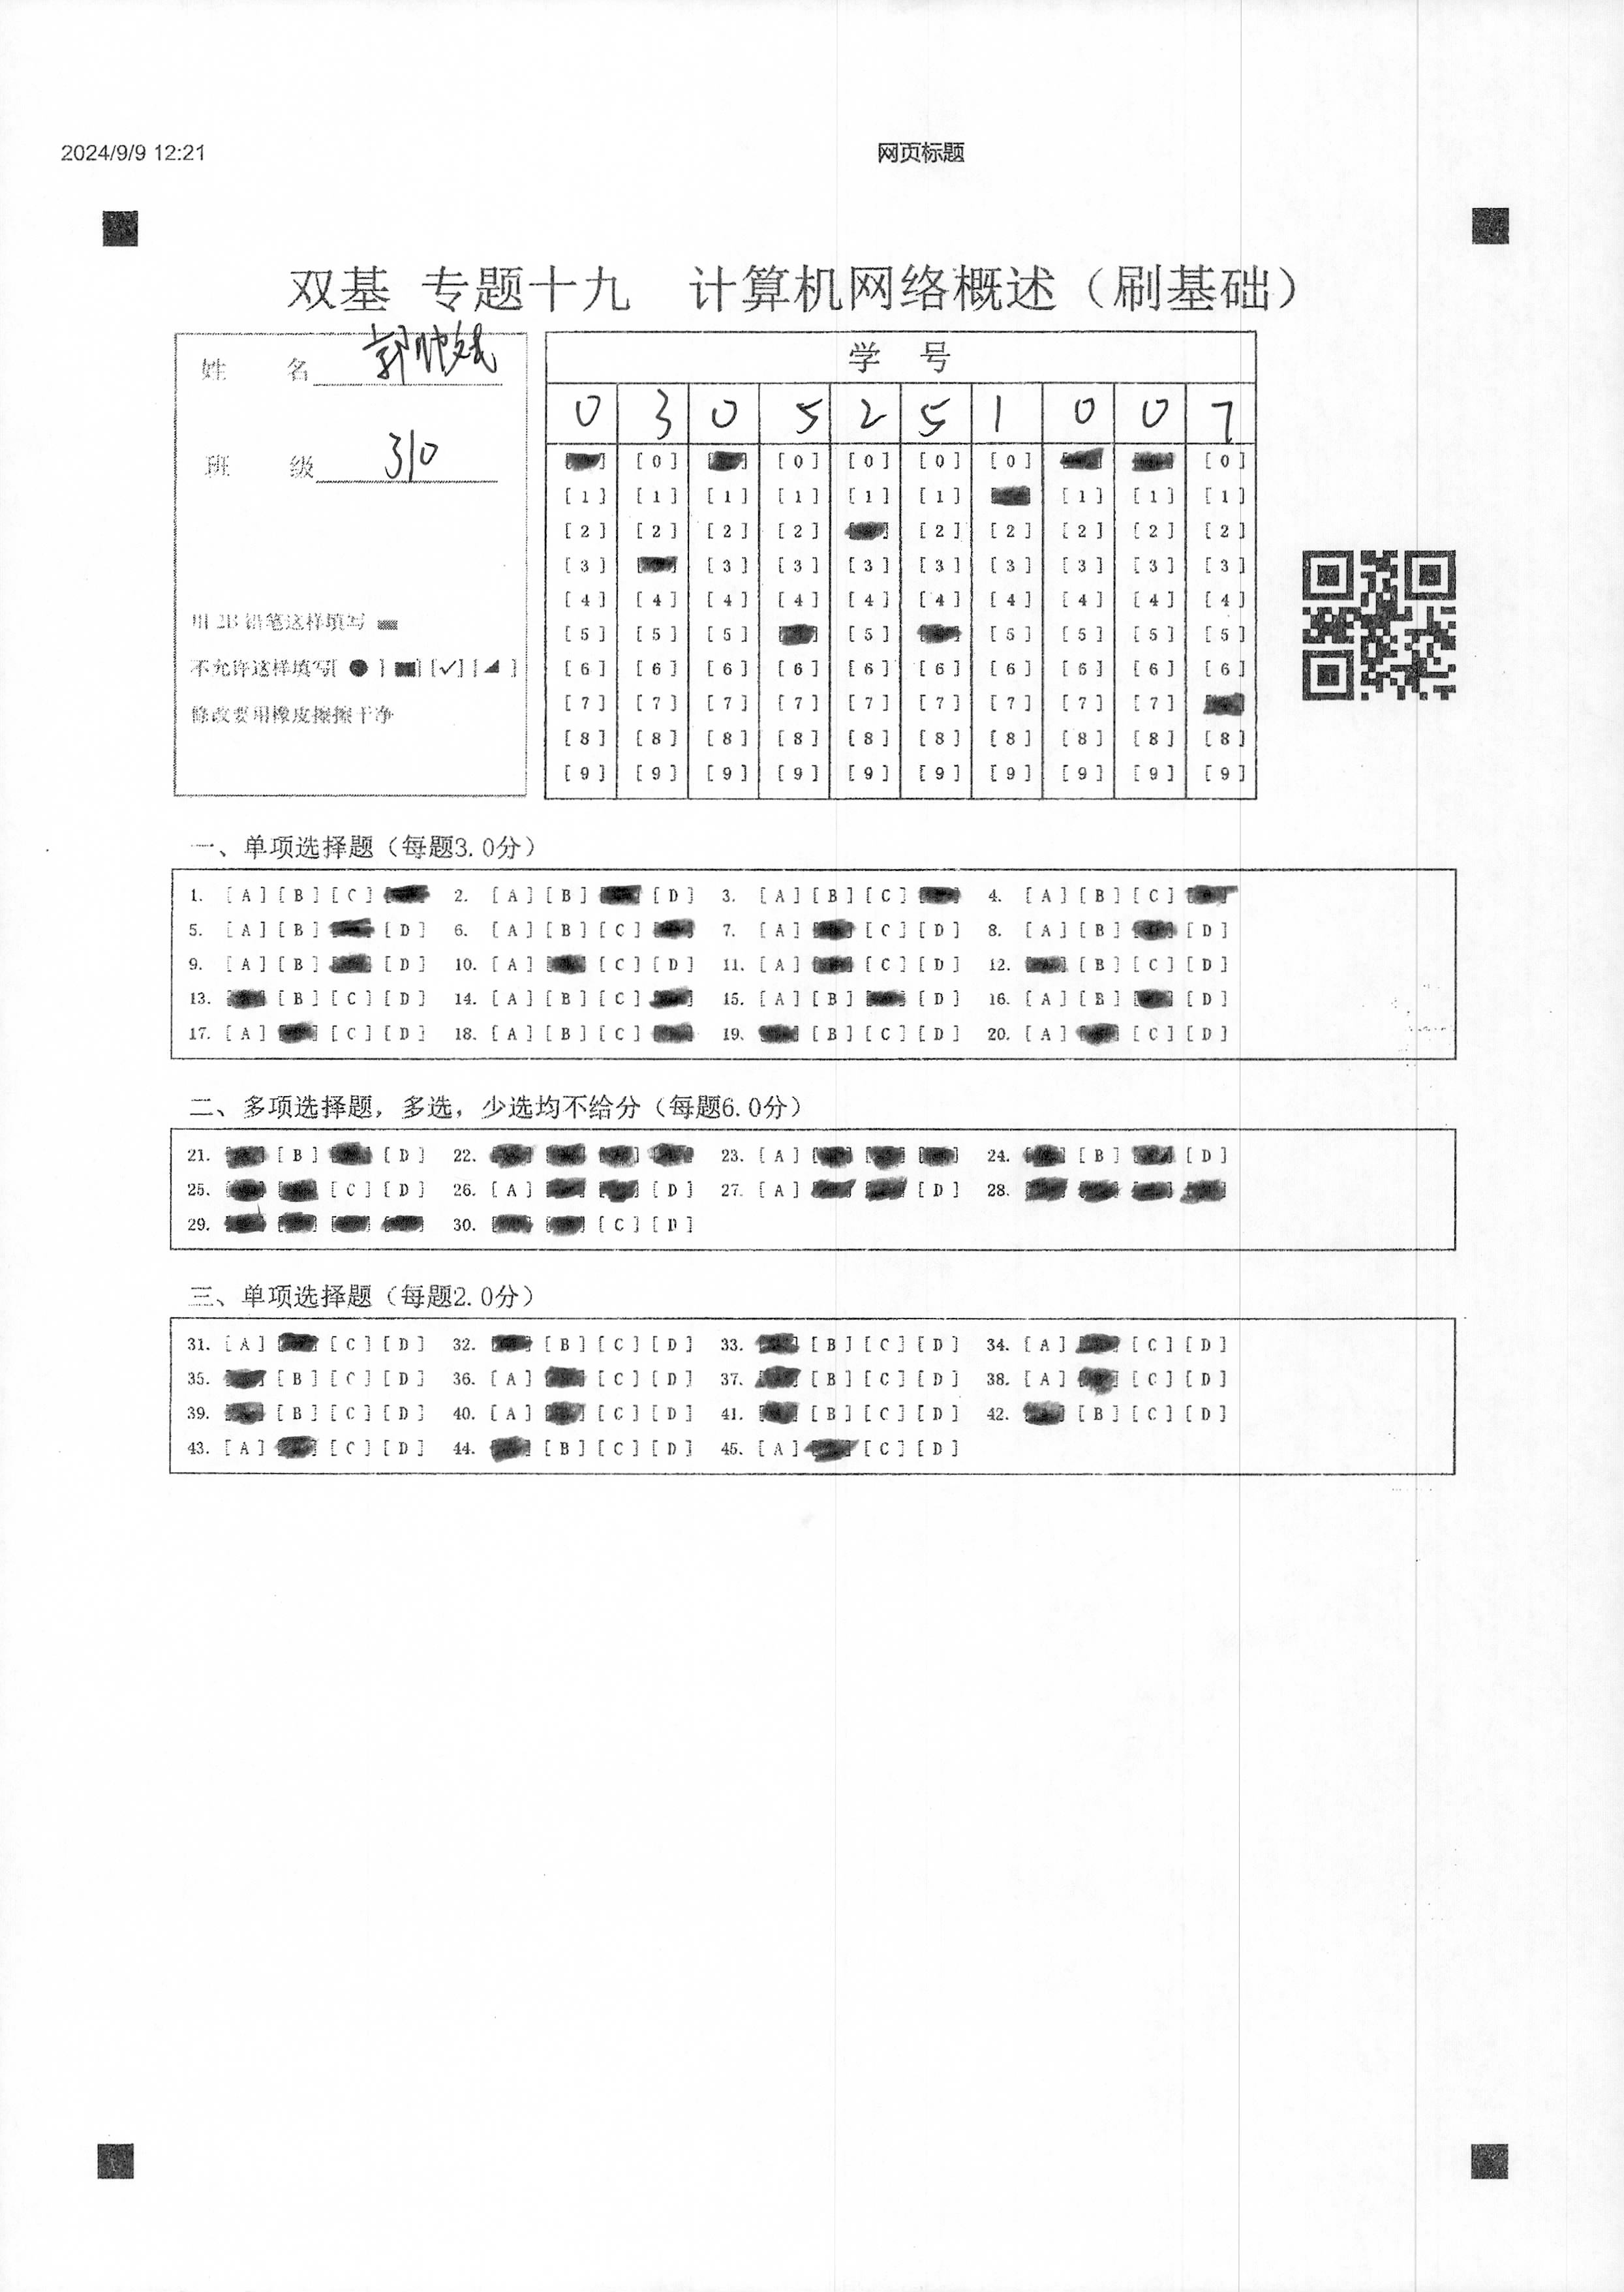 2024/9/9 12:21
网页标题
双基 专题十九 计算机网络概述（刷基础）
姓 名
班 级 310
用 2B 铅笔这样填写
不允许这样填写[ ● ] [■] [✓] [◢ ]
修改要用橡皮擦擦干净
学 号
0 3 0 5 2 5 1 0 0 7
[0] [0] [0] [0] [0] [0]
[1] [1] [1] [1] [1] [1] [1] [1] [1]
[2] [2] [2] [2] [2] [2] [2] [2] [2]
[3] [3] [3] [3] [3] [3] [3] [3] [3]
[4] [4] [4] [4] [4] [4] [4] [4] [4] [4]
[5] [5] [5] [5] [5] [5] [5] [5]
[6] [6] [6] [6] [6] [6] [6] [6] [6] [6]
[7] [7] [7] [7] [7] [7] [7] [7] [7]
[8] [8] [8] [8] [8] [8] [8] [8] [8] [8]
[9] [9] [9] [9] [9] [9] [9] [9] [9] [9]
一、单项选择题（每题3.0分）
1. [A] [B] [C] 2. [A] [B] [D] 3. [A] [B] [C] 4. [A] [B] [C]
5. [A] [B] [D] 6. [A] [B] [C] 7. [A] [C] [D] 8. [A] [B] [D]
9. [A] [B] [D] 10. [A] [C] [D] 11. [A] [C] [D] 12. [B] [C] [D]
13. [B] [C] [D] 14. [A] [B] [C] 15. [A] [B] [D] 16. [A] [B] [D]
17. [A] [C] [D] 18. [A] [B] [C] 19. [B] [C] [D] 20. [A] [C] [D]
二、多项选择题，多选，少选均不给分（每题6.0分）
21. [B] [D] 22. 23. [A] 24. [B] [D]
25. [C] [D] 26. [A] [D] 27. [A] [D] 28.
29. 30. [C] [D]
三、单项选择题（每题2.0分）
31. [A] [C] [D] 32. [B] [C] [D] 33. [B] [C] [D] 34. [A] [C] [D]
35. [B] [C] [D] 36. [A] [C] [D] 37. [B] [C] [D] 38. [A] [C] [D]
39. [B] [C] [D] 40. [A] [C] [D] 41. [B] [C] [D] 42. [B] [C] [D]
43. [A] [C] [D] 44. [B] [C] [D] 45. [A] [C] [D]